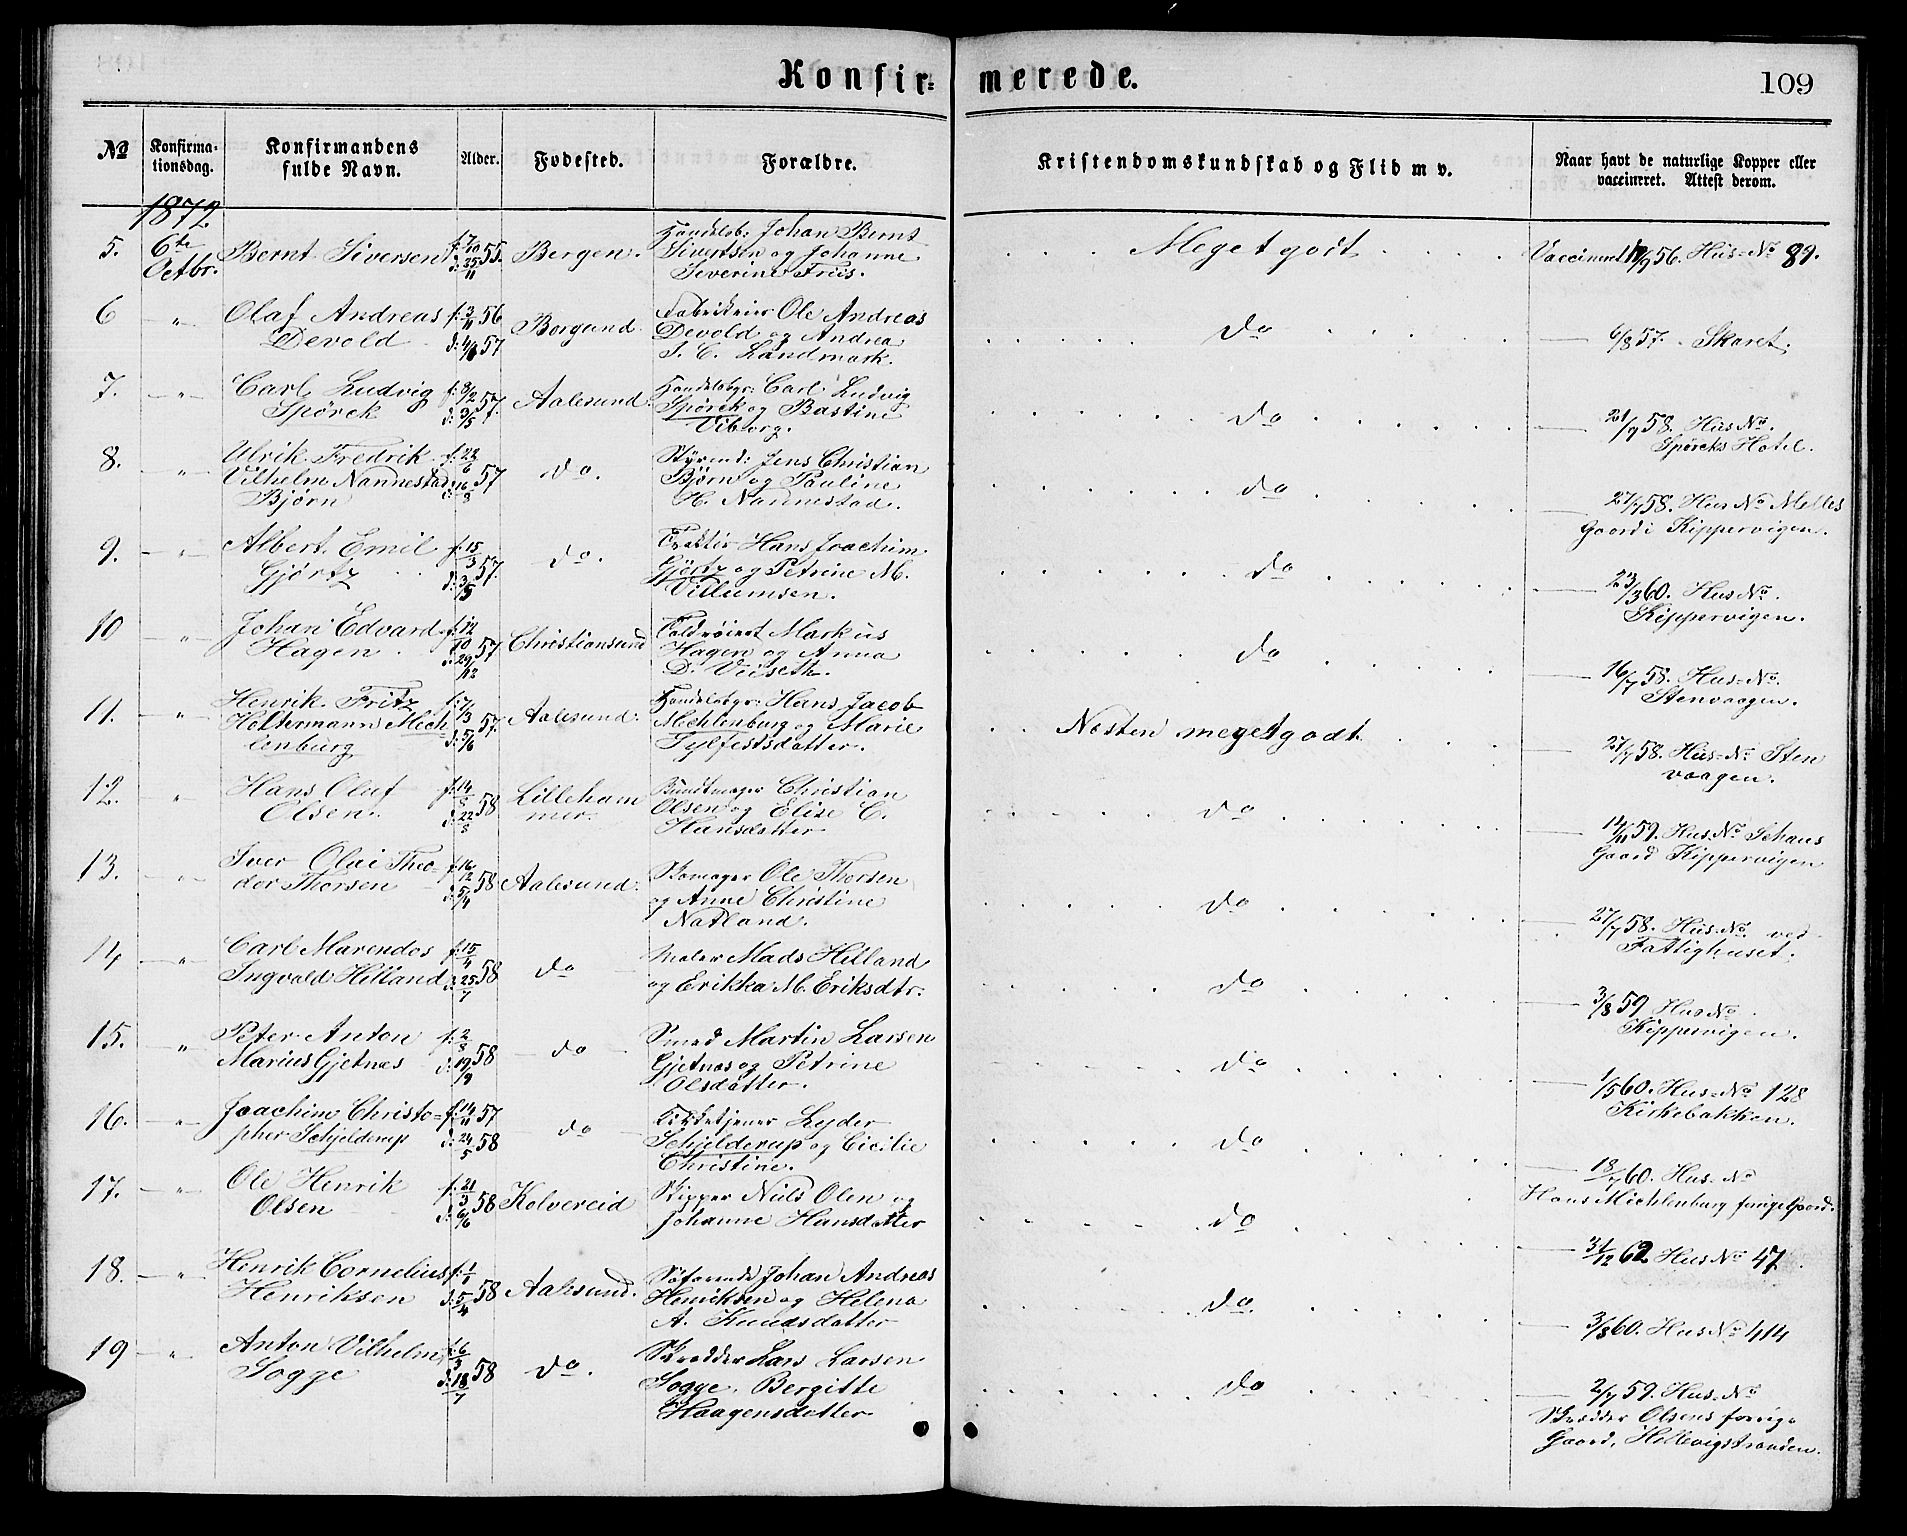 Konfir-
merede.
109
No
Konfirma-
tionsdag.
Konfirmandens
fulde Navn.
Alder.
Fødested.
Forældre.
Kristendomskundskab og Flid m v.
Naar havt de naturlige Kopper eller
vaccineret. Attest derom.
1872
5. 6te Octbr. Bernt Siversen f: 7/10 55. d: 25/11 Bergen. Handelsb: Johan Bernt
Sivertsen og Johanne
Severine Friis.
Meget godt
Vaccineret 17/9 56. Hus-No 89.
6 " Olaf Andreas
Devold f: 3/11 56 d: 4/1 57 Borgund. Fabrikeier Ole Andreas
Devold og Andrea
S. C. Landmark.
do
6/8 57. Skaret.
7. " Carl Ludvig
Spörck f: 8/2 57. d: 3/5 Aalesund. Handelsbgr: Carl Ludvig
Spörck og Bastine
Viborg.
do
21/9 58. Hus No.
Spörcks Hotel.
8. " Ulrik Fredrik
Vilhelm Nannestad
Björn f: 23/6 57 d: 16/8 do. Styrmd: Jens Christian
Björn og Pauline
H. Nannestad.
do
27/7 58. Hus No Melles
Gaard i Kippervigen.
9. " Albert Emil
Gjörtz f: 15/3 57. d: 3/5 do. Hans Joachim
Gjörtz og Petrine M.
Villumsen.
do
23/3 60. Hus No.
Kippervigen.
10 " Johan Edvard
Hagen f: 12/10 57 d: 29/12 Christiansund Toldröiert Markus
Hagen og Anna
D. Veiseth.
do
16/7 58. Hus-No.
Stenvaagen.
11. " Henrik Fritz
Holtermann Mech-
lenburg f: 7/3 57. d: 5/6 Aalesund. Handelsbgr: Hans Jacob
Mechlenburg og Marie
Sylfestsdatter.
Nesten meget godt
27/7 58. Hus-No Sten
vaagen.
12. " Hans Oluf
Olsen. f: 14/5 58 d: 22/8 Lilleham
mer. Buntmager Christian
Olsen og Elise C.
Hansdatter
do
14/11 59. Hus No Schaus
Gaard Kippervigen
13. " Iver Olai Theo
dor Thorsen f: 16/12 58 d: 5/4 Aalesund. Skomager Ole Thorsen
og Anne Christine
Natland.
do
27/7 58. Hus-No ved
Fattighuset.
14 " Carl Marendos
Ingvald Hilland f: 15/4 58 d: 25/7 do Maler Mads Hilland
og Erikka M. Eriksdtr:
do
3/8 59 Hus No.
Kippervigen.
15. " Peter Anton
Marius Gjetnes f: 2/8 58 d: 19/9 do Smed Martin Larsen
Gjetnes og Petrine
Olsdatter.
do
1/5 60. Hus-No 128
Kirkebakken.
16. " Joachim Christo=
pher Schjelderup f: 14/11 57 d: 24/5 58 do Kirketjener Lyder
Schjelderup og Cicilie
Christine.
do
18/7 60. Hus-No
Hans Michlenburg forrige Gaard.
17. " Ole Henrik
Olsen f: 21/3 58 d: 6/6 Kolvereid Skipper Niils Olen og
Johanne Hansdatter
do
31/12 62 Hus No 47.
18. " Henrik Cornelius
Henriksen f: 1/1 58 d: 5/4 Aalesund. Söfarende Johan Andreas
Henriksen og Helena
A. Knudsdatter
do
3/8 60. Hus No 414
19 " Anton Vilhelm
Sogge f: 6/3 58 d: 18/7 do. Skrædder Lars Larsen
Sogge, Bergitte
Haagensdatter
do
2/7 59. Hus-No
Skrædder Olsens forrige
Gaard, Hellevigstranden.